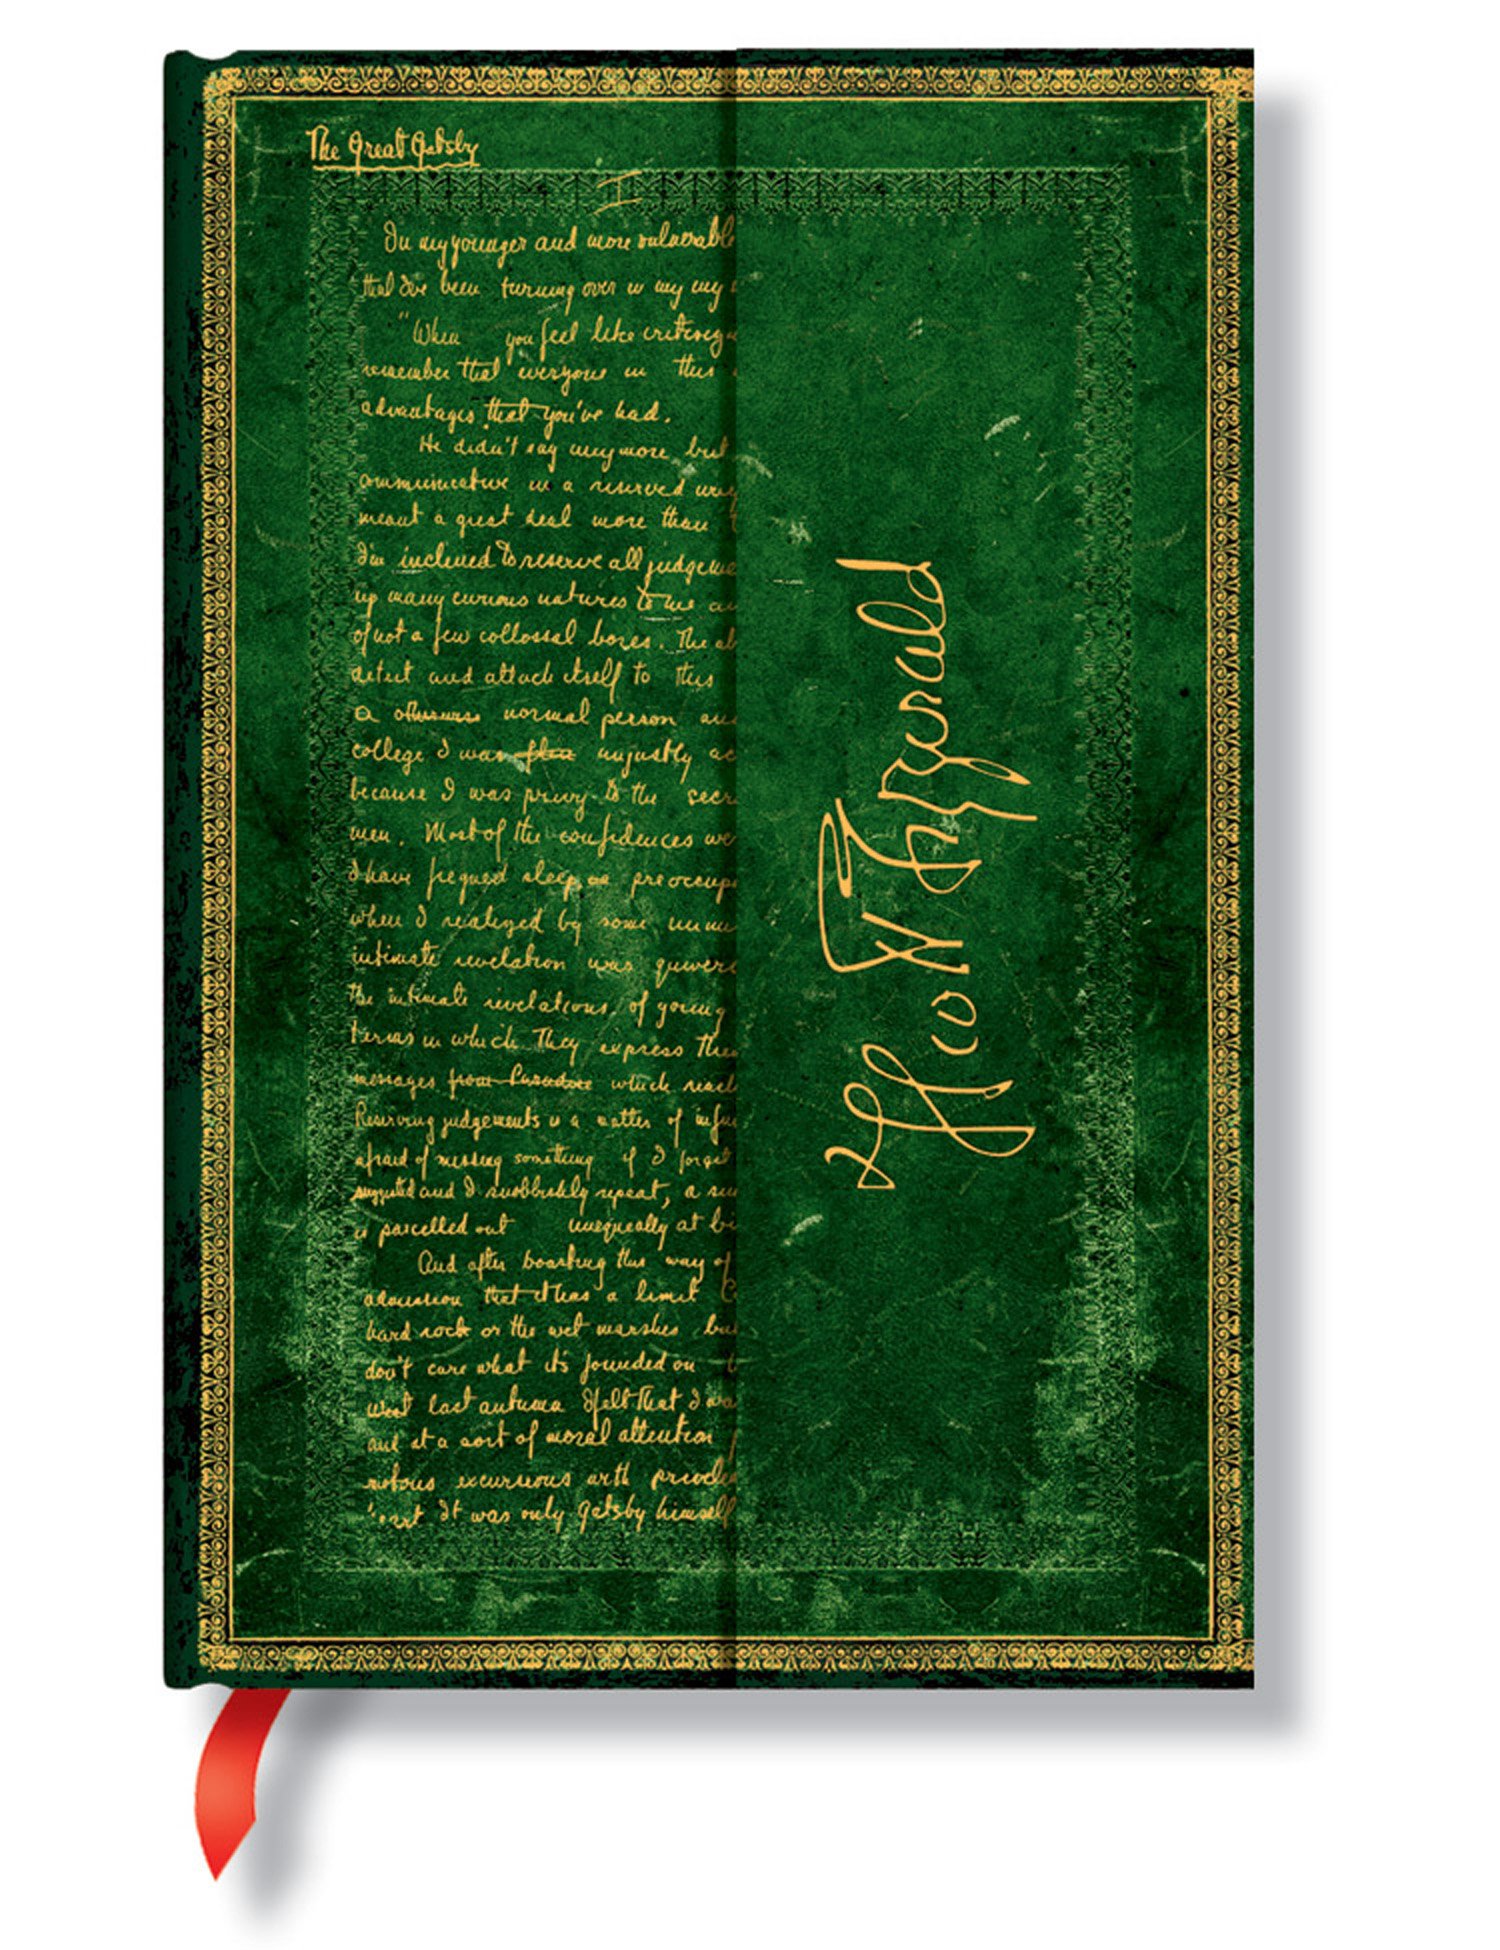 The Great Gatsby
I
In my younger and more vulnerable
that I've been turning over in my my
"When you feel like critizing
remember that everyone in this
advantages that you've had.
He didn't say anymore but
communicative in a reserved way
meant a great deal more than
I'm inclined to reserve all judgeme
up many curious natures to me an
of not a few collossal bores. The ab
detect and attach itself to this
a otherwise normal person and
college I was often unjustly ac
because I was privy to the secr
men. Most of the confidences we
I have feigned sleep, preoccup
when I realized by some unmi
intimate revelation was quiveri
the intimate revelations of young
terms in which they express them
messages from Paradise which reach
Reserving judgements is a matter of infin
afraid of missing something if I forget
suggested and I snobbishly repeat, a sen
is parcelled out unequally at bi
And after boasting this way of
admission that it has a limit Co
hard rock or the wet marshes but
don't care what it's founded on
west last autumn I felt that I wa
and at a sort of moral attention
riotous excursions with privile
It was only Gatsby himself
F Scott Fitzgerald